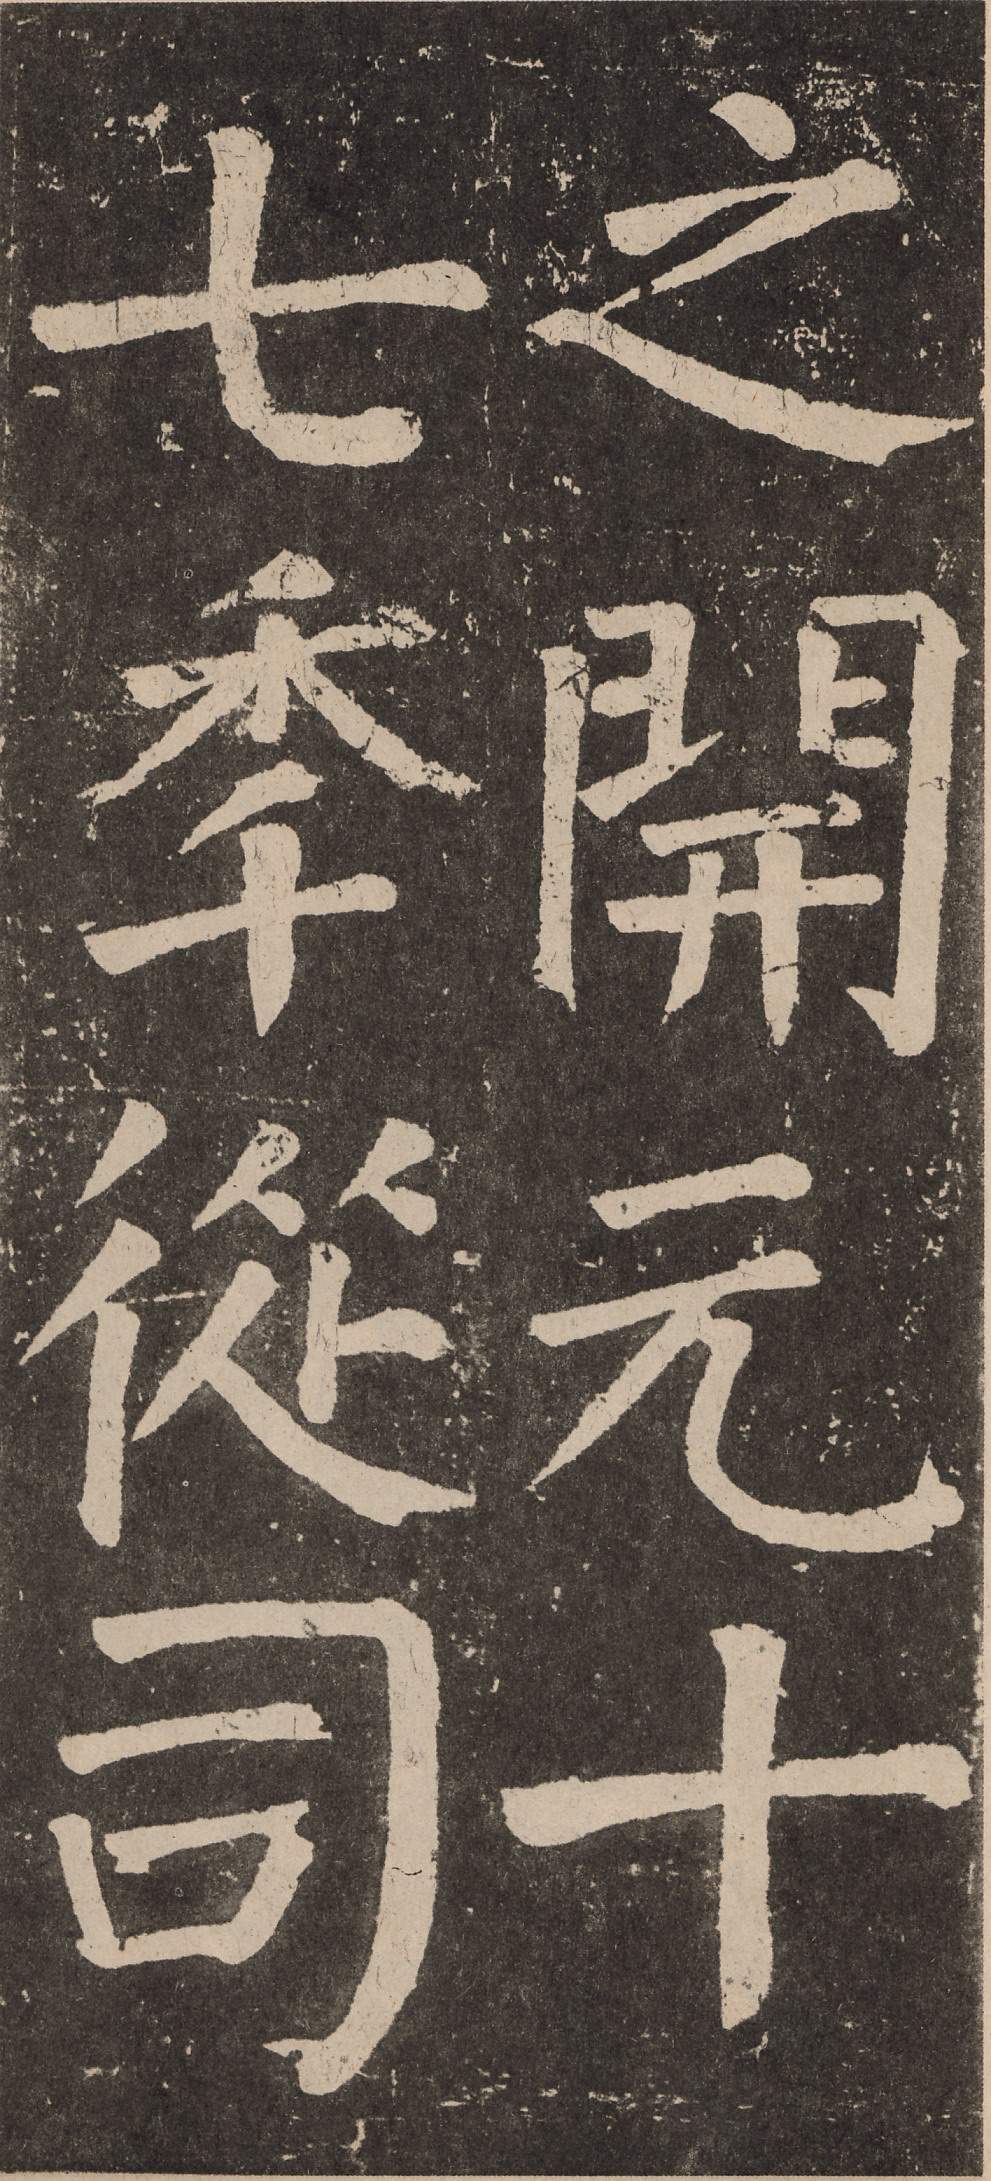 之開元十
七秊從司